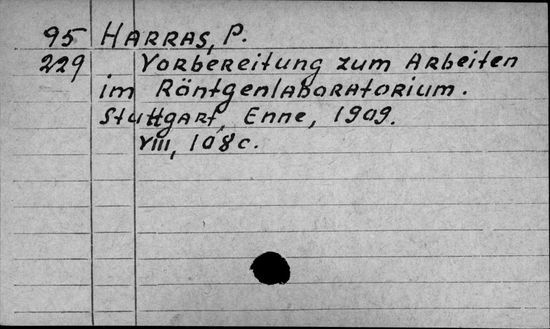 95 HARRAS, P.
229 Vorbereitung zum Arbeiten
im Röntgenlaboratorium.
Stuttgart, Enne, 1909.
VIII, 108 c.